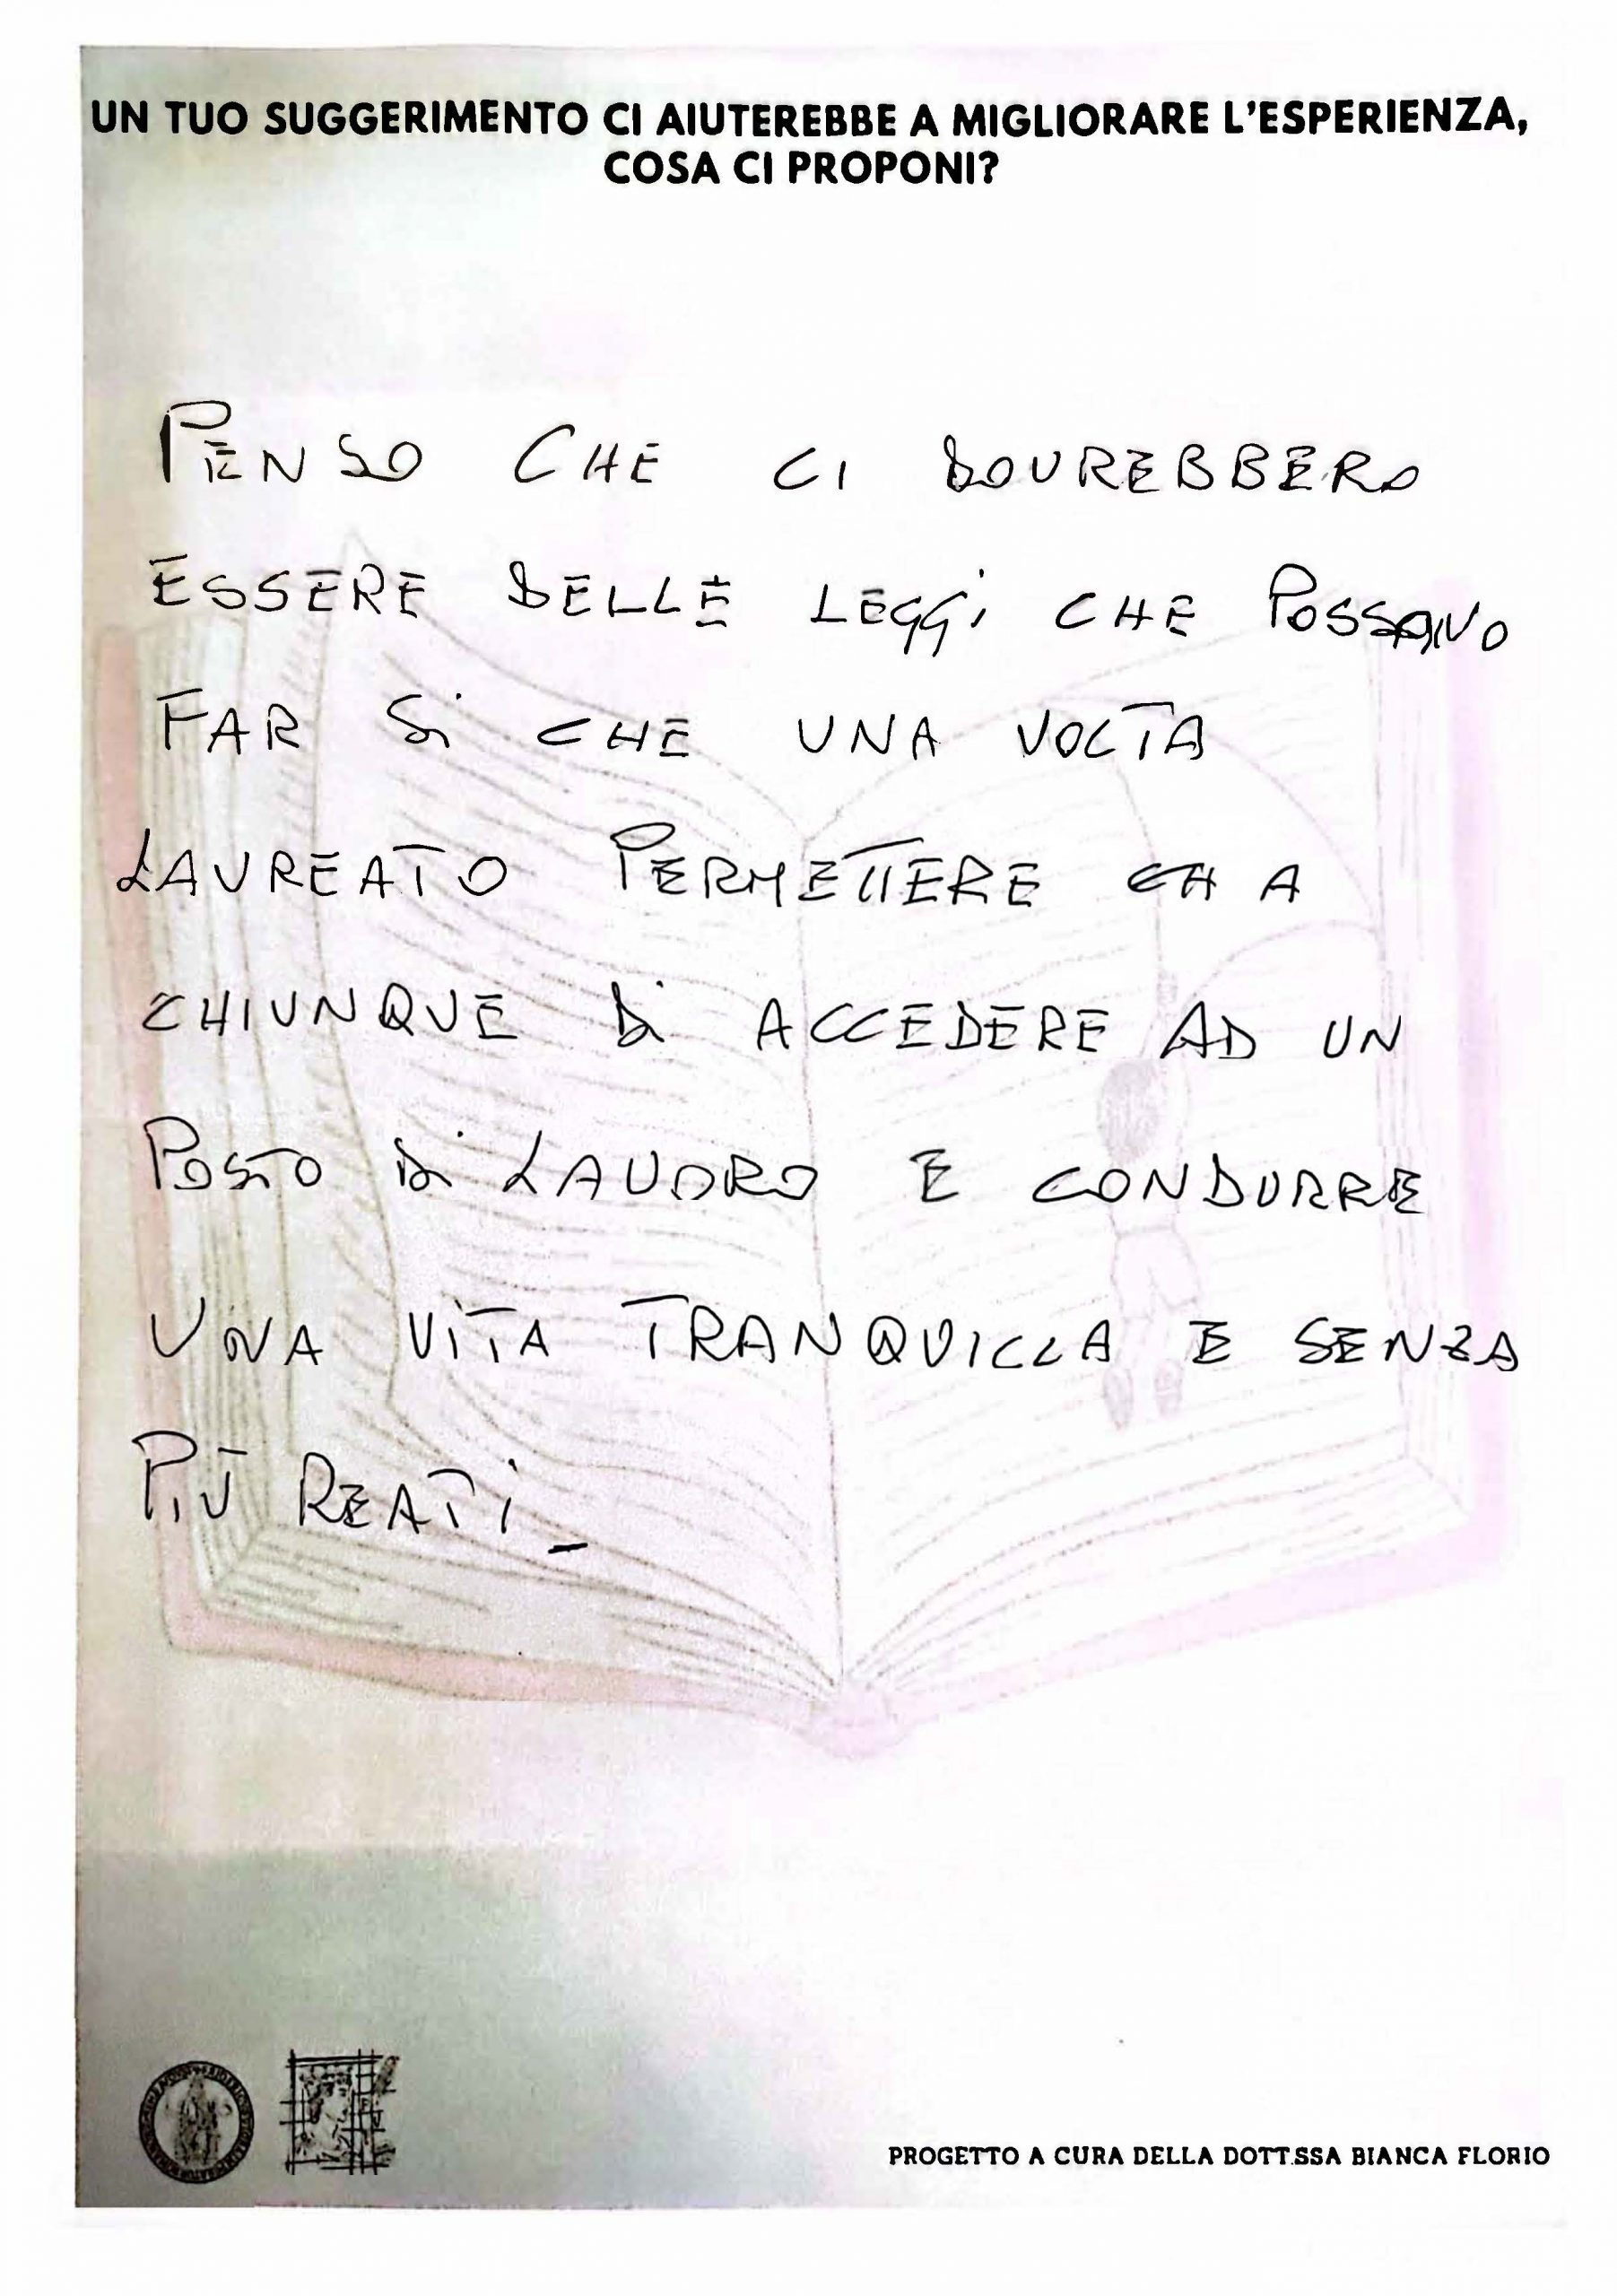 UN TUO SUGGERIMENTO CI AIUTEREBBE A MIGLIORARE L'ESPERIENZA,
COSA CI PROPONI?
PENSO CHE CI DOVREBBERO
ESSERE DELLE LEGGI CHE POSSANO
FAR SI CHE UNA VOLTA
LAUREATO PERMETTERE A
CHIUNQUE DI ACCEDERE AD UN
POSTO DI LAVORO E CONDURRE
UNA VITA TRANQUILLA E SENZA
PIÙ REATI_
PROGETTO A CURA DELLA DOTT.SSA BIANCA FLORIO